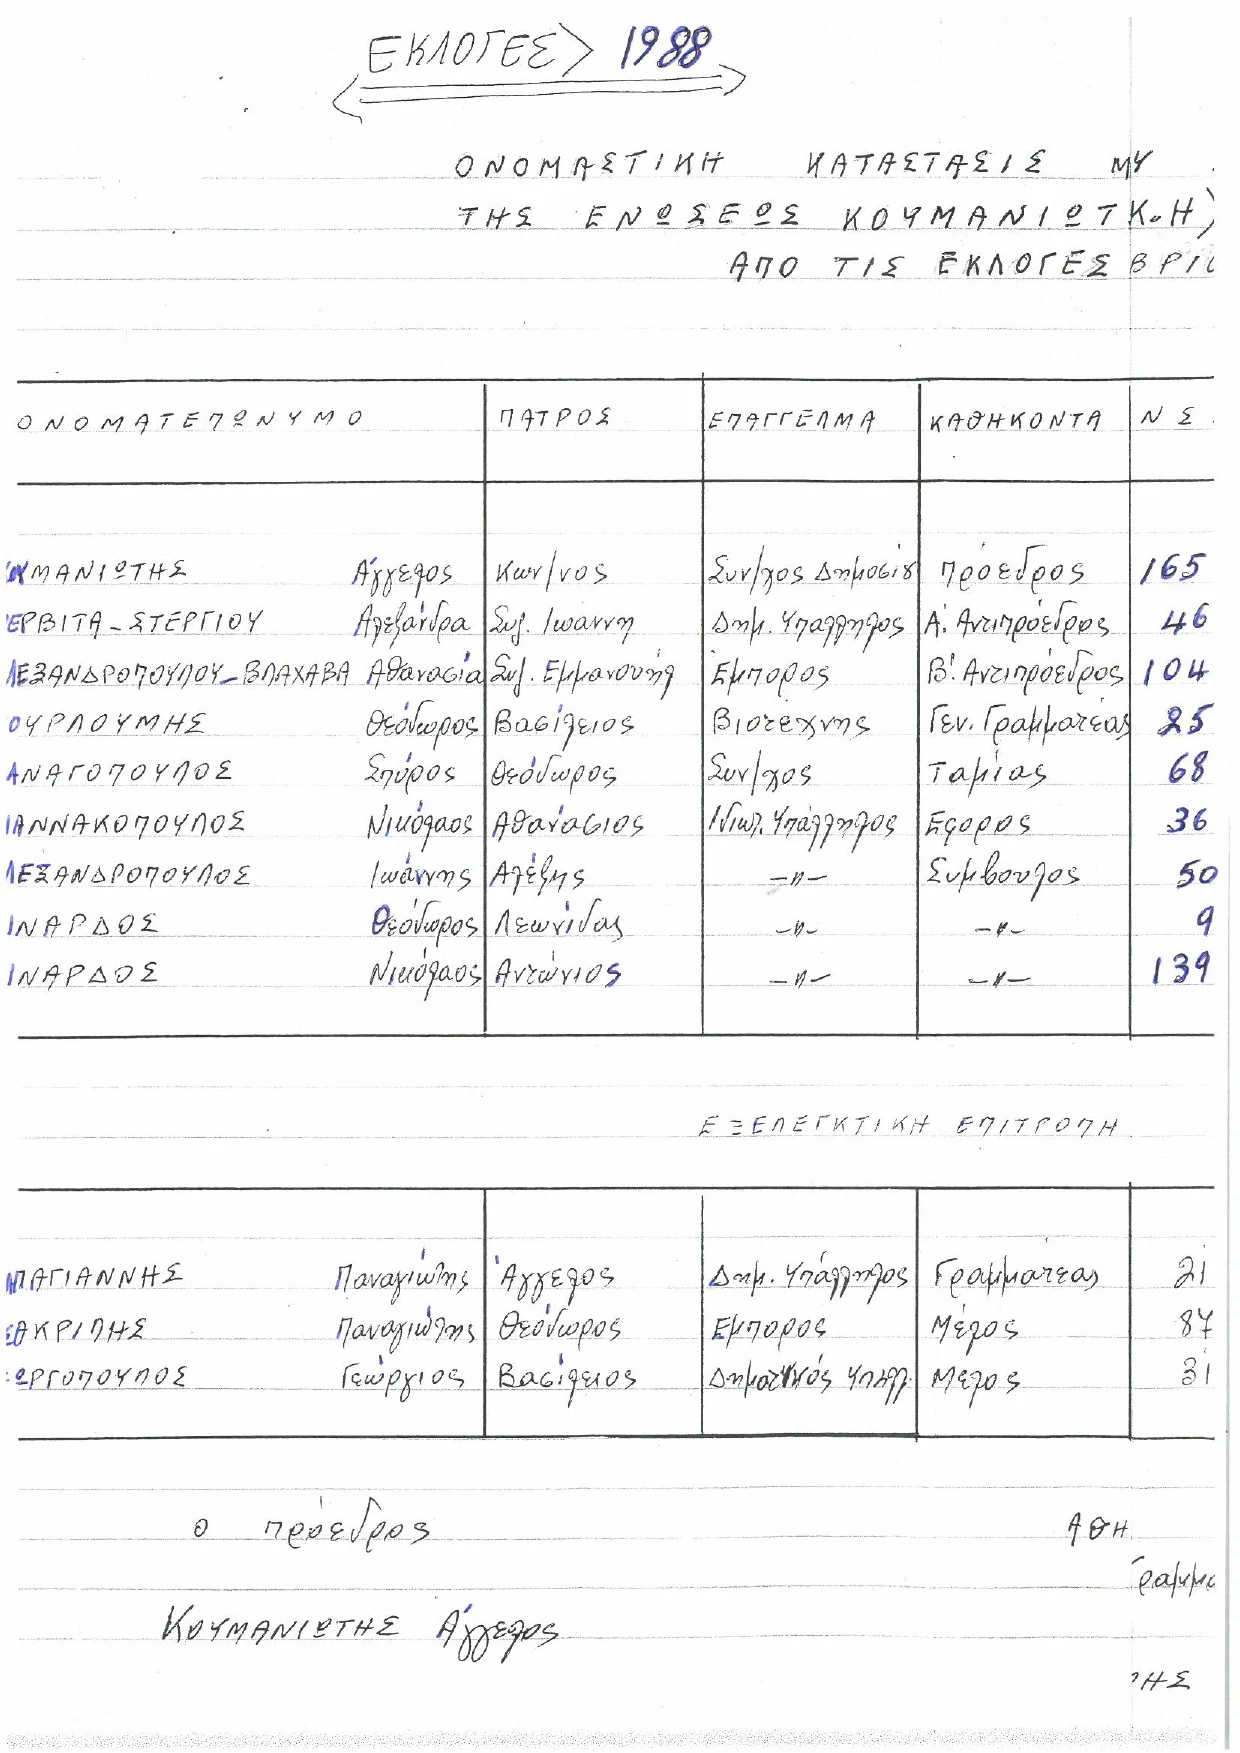 ΕΚΛΟΓΕΣ> 1988
ΟΝΟΜΑΣΤΙΚΗ ΚΑΤΑΣΤΑΣΙΣ ΜΥ
ΤΗΣ ΕΝΩΣΕΩΣ ΚΟΥΜΑΝΙΩΤΚ.Η)
ΑΠΟ ΤΙΣ ΕΚΛΟΓΕΣ ΒΡΙ
ΟΝΟΜΑΤΕΠΩΝΥΜΟ ΠΑΤΡΟΣ ΕΠΑΓΓΕΛΜΑ ΚΑΘΗΚΟΝΤΑ Ν Σ
ΥΜΑΝΙΩΤΗΣ Άγγελος Κων/νος Συν/χος Δημοσίου Πρόεδρος 165
ΕΡΒΙΤΑ-ΣΤΕΡΓΙΟΥ Αλεξάνδρα Συζ. Ιωάννη Δημ. Υπάλληλος Α. Αντιπρόεδρος 46
ΛΕΞΑΝΔΡΟΠΟΥΛΟΥ-ΒΛΑΧΑΒΑ Αθανασία Συζ. Εμμανουήλ Εμπορος Β' Αντιπρόεδρος 104
ΟΥΡΛΟΥΜΗΣ Θεόδωρος Βασίλειος Βιοτεχνης Γεν. Γραμματέας 25
ΑΝΑΓΟΠΟΥΛΟΣ Σπύρος Θεόδωρος Συν/χος Ταμίας 68
ΙΑΝΝΑΚΟΠΟΥΛΟΣ Νικόλαος Αθανάσιος Ιδιωτ. Υπάλληλος Εφορος 36
ΛΕΞΑΝΔΡΟΠΟΥΛΟΣ Ιωάννης Αλέξης -〃- Συμβουλος 50
ΙΝΑΡΔΟΣ Θεόδωρος Λεωνίδας -〃- -〃- 9
ΙΝΑΡΔΟΣ Νικόλαος Αντώνιος -〃- -〃- 139
ΕΞΕΛΕΓΚΤΙΚΗ ΕΠΙΤΡΟΠΗ
ΠΑΓΙΑΝΝΗΣ Παναγιώτης Άγγελος Δημ. Υπάλληλος Γραμματέας 21
ΑΚΡΙΠΗΣ Παναγιώτης Θεόδωρος Εμπορος Μέλος 87
ΩΡΓΟΠΟΥΛΟΣ Γεώργιος Βασίλειος Δημοτικός Υπαλλ. Μέλος 31
Ο Πρόεδρος ΑΘΗ
Γραμμα
ΚΟΥΜΑΝΙΩΤΗΣ Άγγελος
ΗΣ